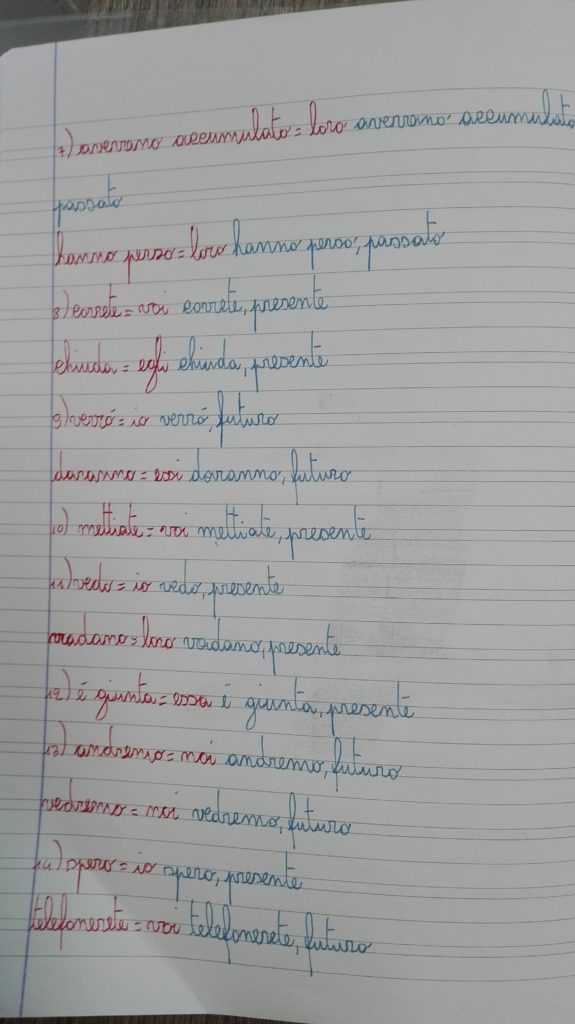 7) averrano accumulato = loro averrano accumulato
passato
hanno perso = loro hanno perso, passato
8) correte = voi correte, presente
chiuda = egli chiuda, presente
9) verró = io verró, futuro
daranno = essi daranno, futuro
10) mettiate = voi mettiate, presente
11) vedo = io vedo, presente
vadano = loro vadano, presente
12) é giunta = essa é giunta, presente
13) andremo = noi andremo, futuro
vedremo = noi vedremo, futuro
14) spero = io spero, presente
telefonerete = voi telefonerete, futuro